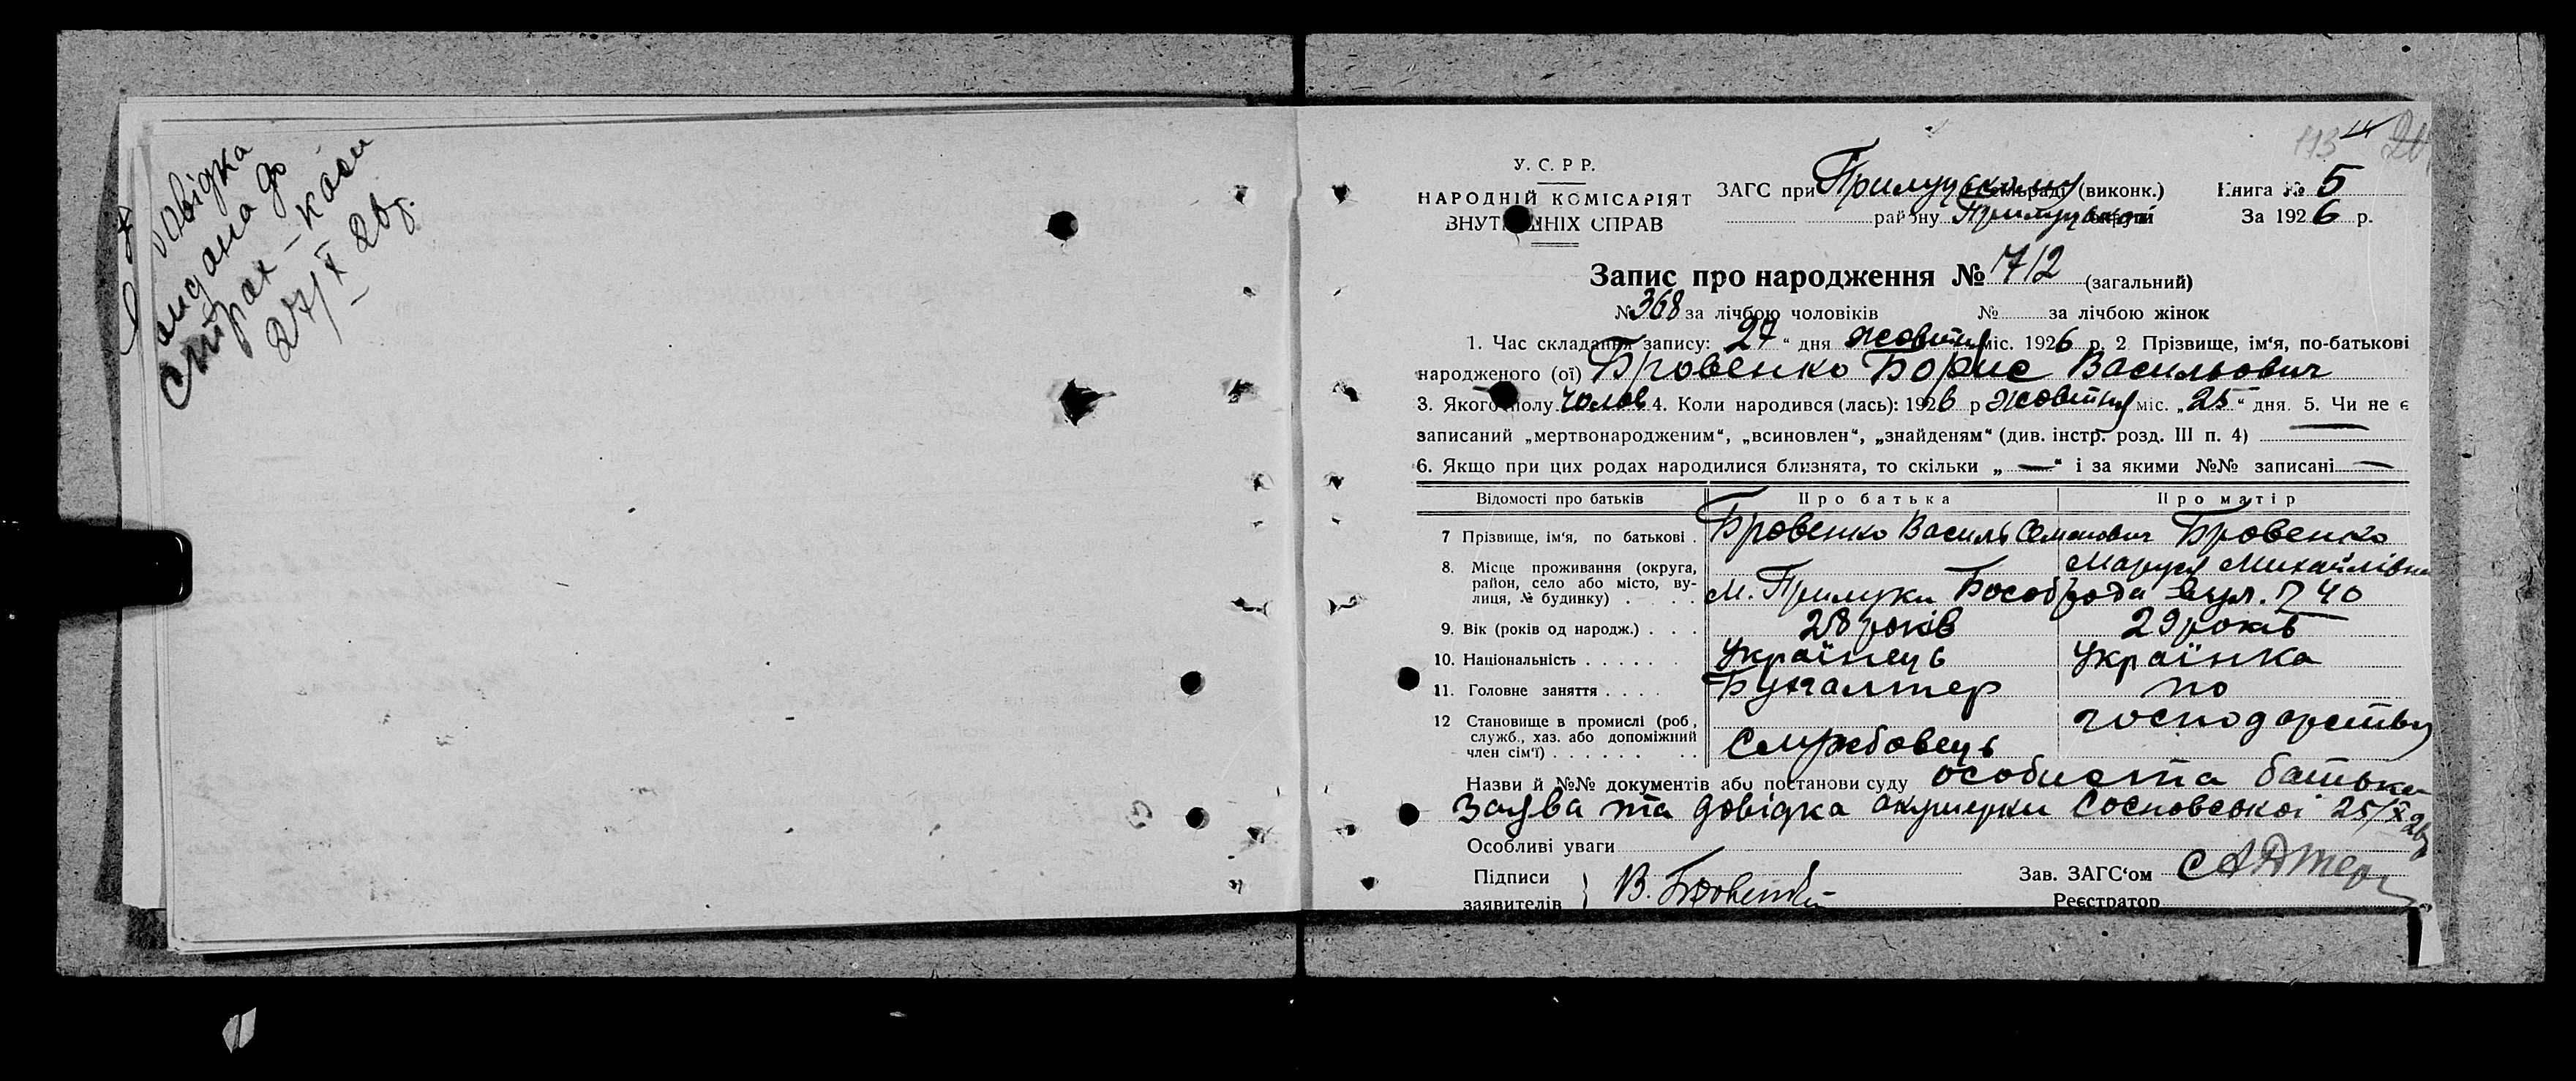 Довідка
видана до
страх-каси
27/X 26 р.
113
У. С. Р. Р.
НАРОДНІЙ КОМІСАРІЯТ
ВНУТРІШНІХ СПРАВ
ЗАГС при Прилуцькому (виконк.)
району Прилуцької
Книга № 5
За 1926 р.
Запис про народження № 712 (загальний)
№ 368 за лічбою чоловіків № за лічбою жінок
1. Час складання запису: 27 " дня жовтня міс. 1926 р. 2 Прізвище, ім'я, по-батькові
народженого (ої) Бровенко Борис Васильович
3. Якого полу чолов 4. Коли народився (лась): 1926 р жовтня міс. „25" дня. 5. Чи не є
записаний „мертвонародженим", „всиновлен", „знайденям" (див. інстр. розд. III п. 4) —
6. Якщо при цих родах народилися близнята, то скільки „ — " і за якими №№ записані —
Відомості про батьків Про батька Про матір
7 Прізвище, ім'я, по батькові . Бровенко Василь Семенович Бровенко
Маруся Михайлівна
8. Місце проживання (округа,
район, село або місто, ву-
лиця, № будинку) . . . . м. Прилуки вул. 40
9. Вік (років од народж.) . . . 28 років 29 років
10. Національність . . . . . . Українець Українка
11. Головне заняття . . . . Бухгалтер по
господарству
12 Становище в промислі (роб,
служб., хаз. або допоміжний
член сім'ї) . . . . . . . . Службовець
Назви й №№ документів або постанови суду особиста батька
заява та довідка акушерки Сосновської 25/X 26
Особливі уваги
Підписи
заявителів } В. Бровенко
Зав. ЗАГС'ом
Реєстратор